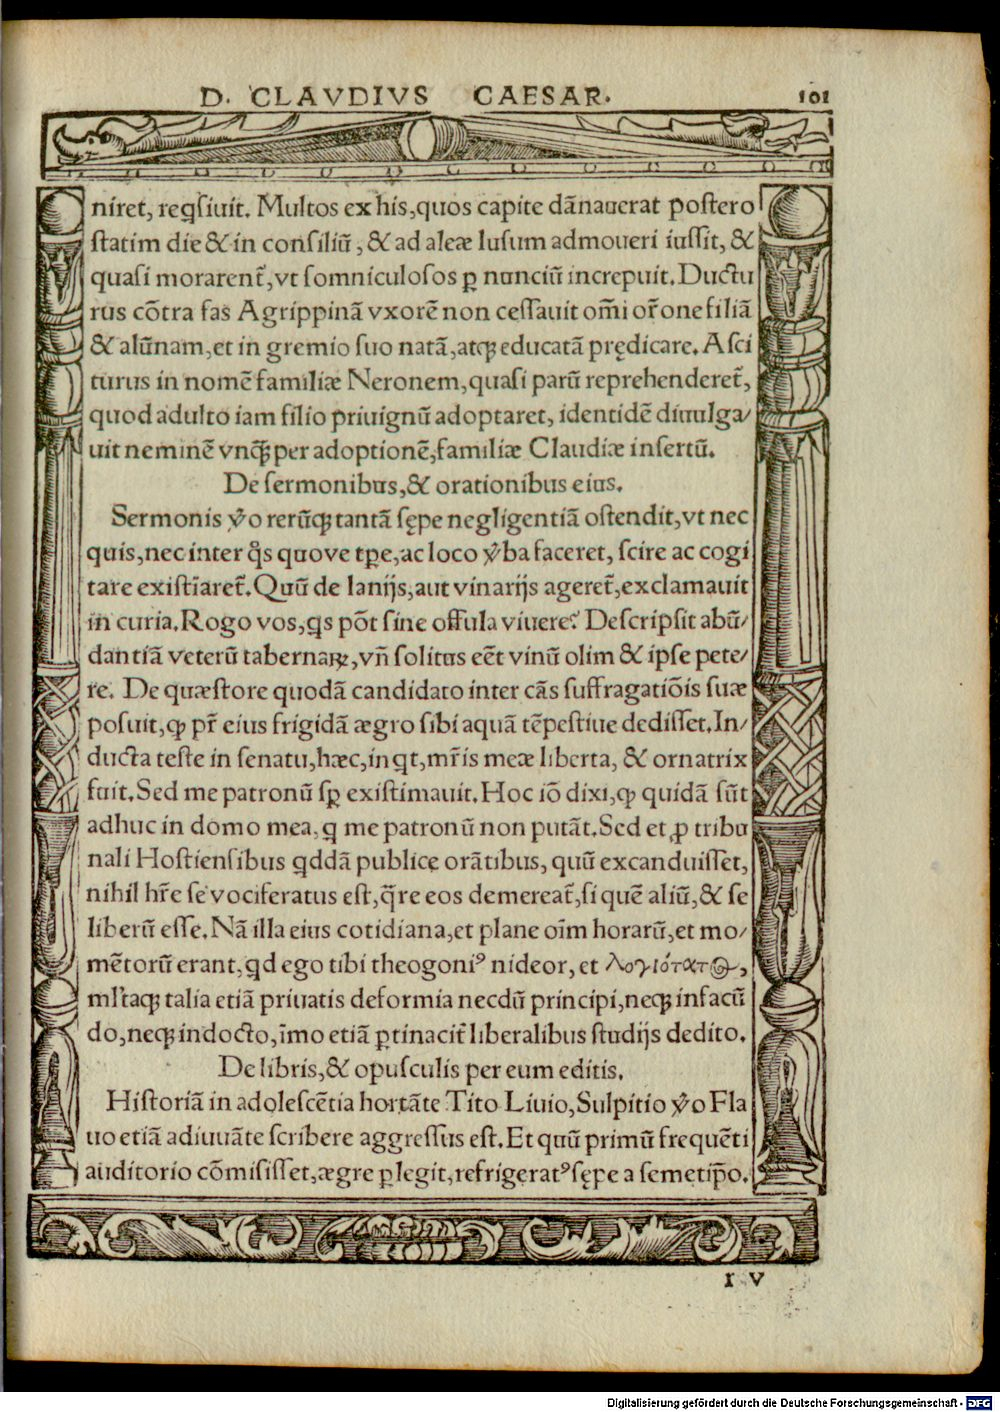 D. CLAVDIVS CAESAR. 101
niret, reqͥsiuit. Multos ex his, quos capite dānauerat postero
statim die & in consiliū, & ad aleæ lusum admoueri iussit, &
quasi morarent᷑, vt somniculosos ꝑ nunciū increpuit. Ductu
rus cōtra fas Agrippinā vxorē non cessauit om̄i or̄one filiā
& alūnam, et in gremio suo natā, atqꝫ educatā prędicare. Asci
turus in nomē familiæ Neronem, quasi parū reprehenderet᷑,
quod adulto iam filio priuignū adoptaret, identidē diuulga/
uit neminē vnqꝫ per adoptionē, familiæ Claudiæ insertū.
De sermonibus, & orationibus eius.
Sermonis ꝟo rerūqꝫ tantā sępe negligentiā ostendit, vt nec
quis, nec inter qͥs quove tꝑe, ac loco ꝟba faceret, scire ac cogi
tare existīaret᷑. Quū de lanijs, aut vinarijs ageret᷑, exclamauit
in curia. Rogo vos, qͥs pōt sine offula viuere? Descripsit abū/
dantiā veterū tabernaꝝ, vn̄ solitus eēt vinū olim & ipse pete/
re. De quæstore quodā candidato inter cās suffragatiōis suæ
posuit, ꝙ pr̄ eius frigidā ægro sibi aquā tēpestiue dedisset. In/
ducta teste in senatu, hæc, inqͥt, mr̄is meæ liberta, & ornatrix
fuit. Sed me patronū sꝑ existimauit. Hoc iō dixi, ꝙ quidā sūt
adhuc in domo mea, qͥ me patronū non putāt. Sed et ꝓ tribu
nali Hostiensibus qͥddā publice orātibus, quū excanduisset,
nihil hr̄e se vociferatus est, qͣre eos demereat᷑, si quē aliū, & se
liberū esse. Nā illa eius cotidiana, et plane oīm horarū, et mo/
mētorū erant, qͥd ego tibi theogoniꝰ nideor, et λογιότατος,
ml̄taqꝫ talia etiā priuatis deformia necdū principi, neqꝫ infacū
do, neqꝫ indocto, īmo etiā ꝑtinacit᷑ liberalibus studijs dedito.
De libris, & opusculis per eum editis.
Historiā in adolescētia hortāte Tito Liuio, Sulpitio ꝟo Fla
uo etiā adiuuāte scribere aggressus est. Et quū primū frequēti
auditorio cōmisisset, ægre ꝑlegit, refrigeratꝰ sępe a semetip̄o.
I V
Digitalisierung gefördert durch die Deutsche Forschungsgemeinschaft - DFG